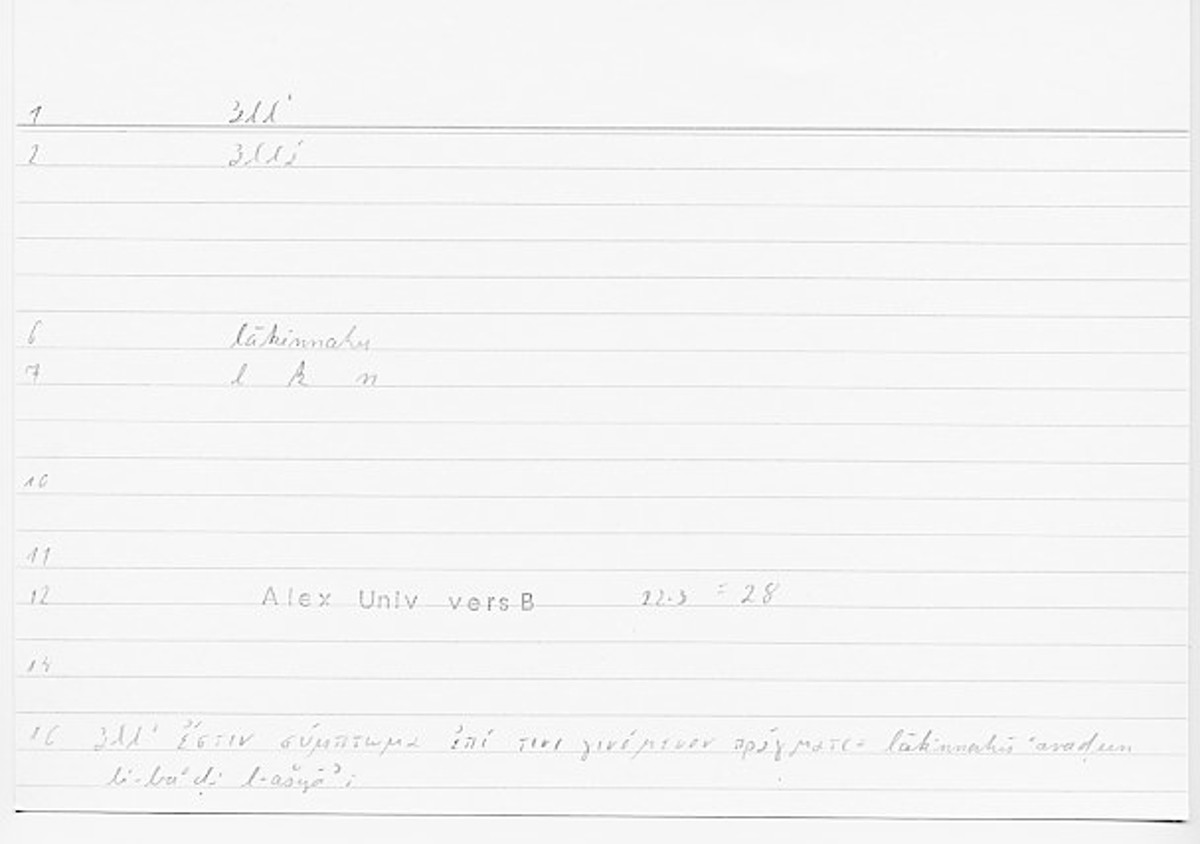 1 ἀλλ'
2 ἀλλά
6 lākinnahu
7 l k n
10
11
12 Alex Univ vers B 22.3 = 28
14
16 ἀλλ' ἔστιν σύμπτωμα ἐπί τινι γινόμενον πράγματι = lākinnahū ʿaraḍun
li-baʿḍi l-ašyāʾi